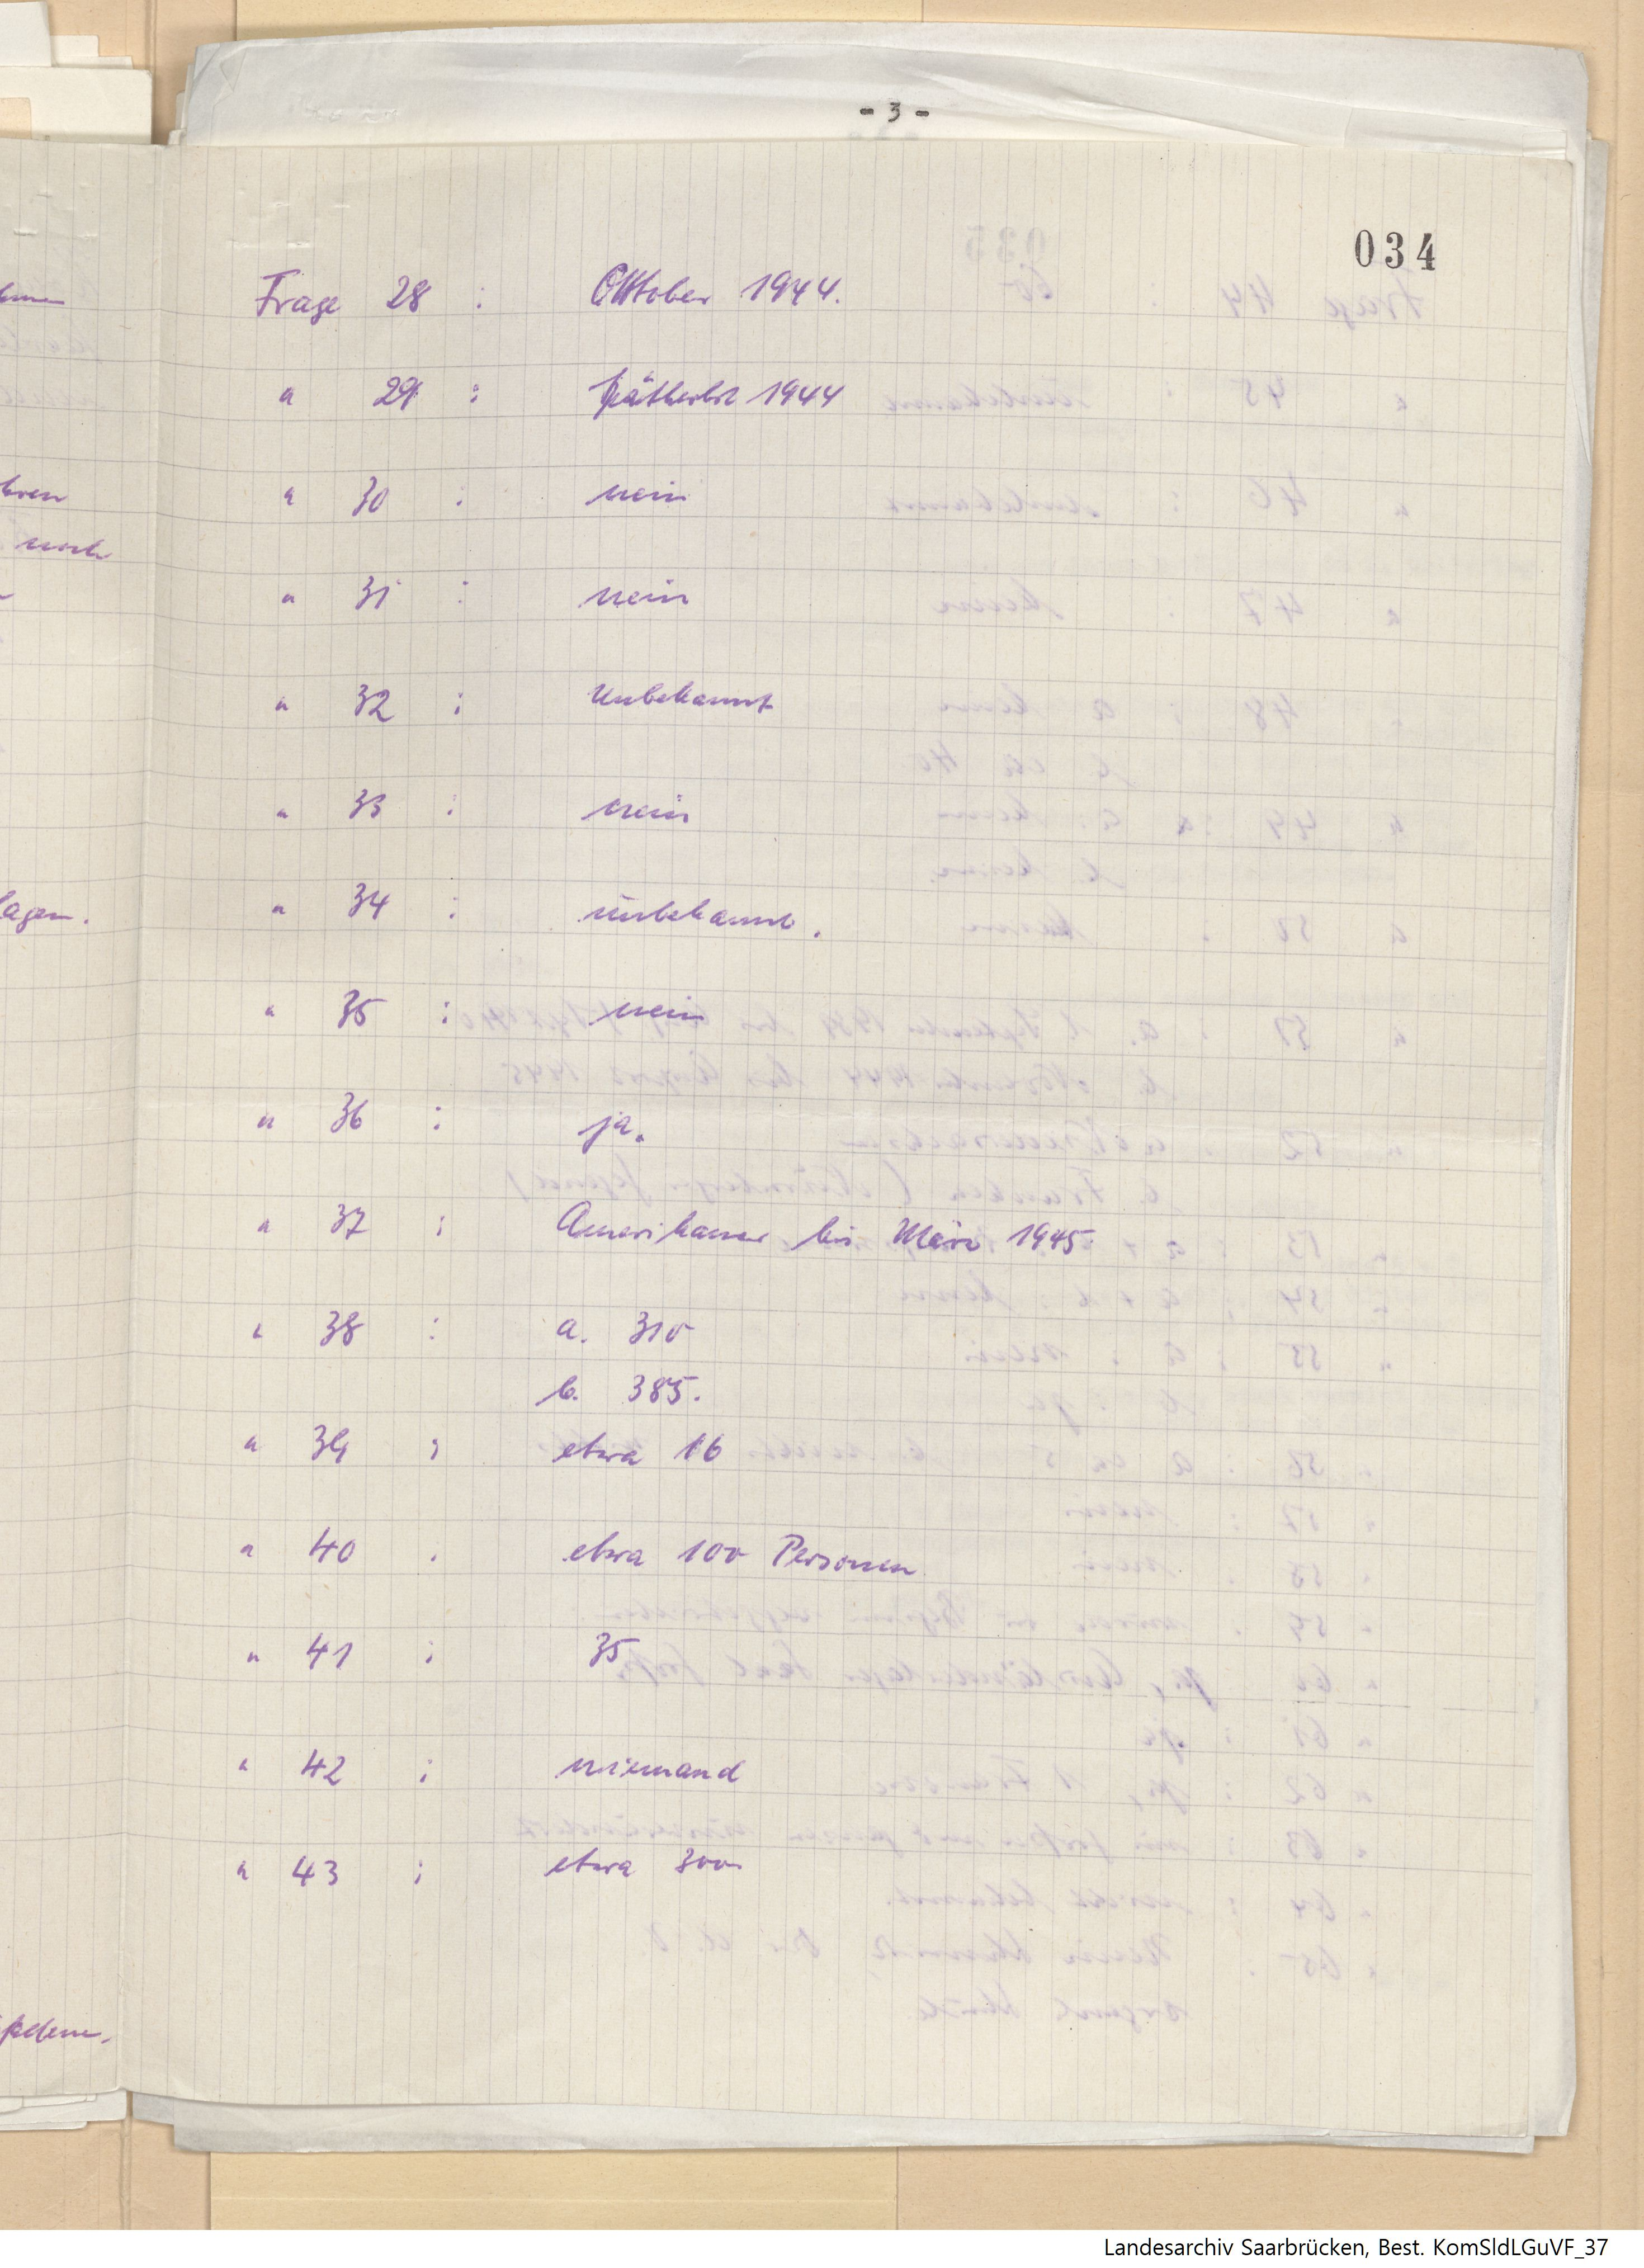 - 3 -
034
Frage 28 : Oktober 1944.
" 29 : Spätherbst 1944
" 30 : nein
" 31 : nein
" 32 : Unbekannt
" 33 : nein
" 34 : unbekannt.
" 35 : nein
" 36 : ja.
" 37 : Amerikaner bis März 1945.
" 38 : a. 310
b. 385.
" 39 : etwa 16
" 40 : etwa 100 Personen
" 41 : 35
" 42 : niemand
" 43 : etwa 300
noch
lagen.
Landesarchiv Saarbrücken, Best. KomSldLGuVF_37